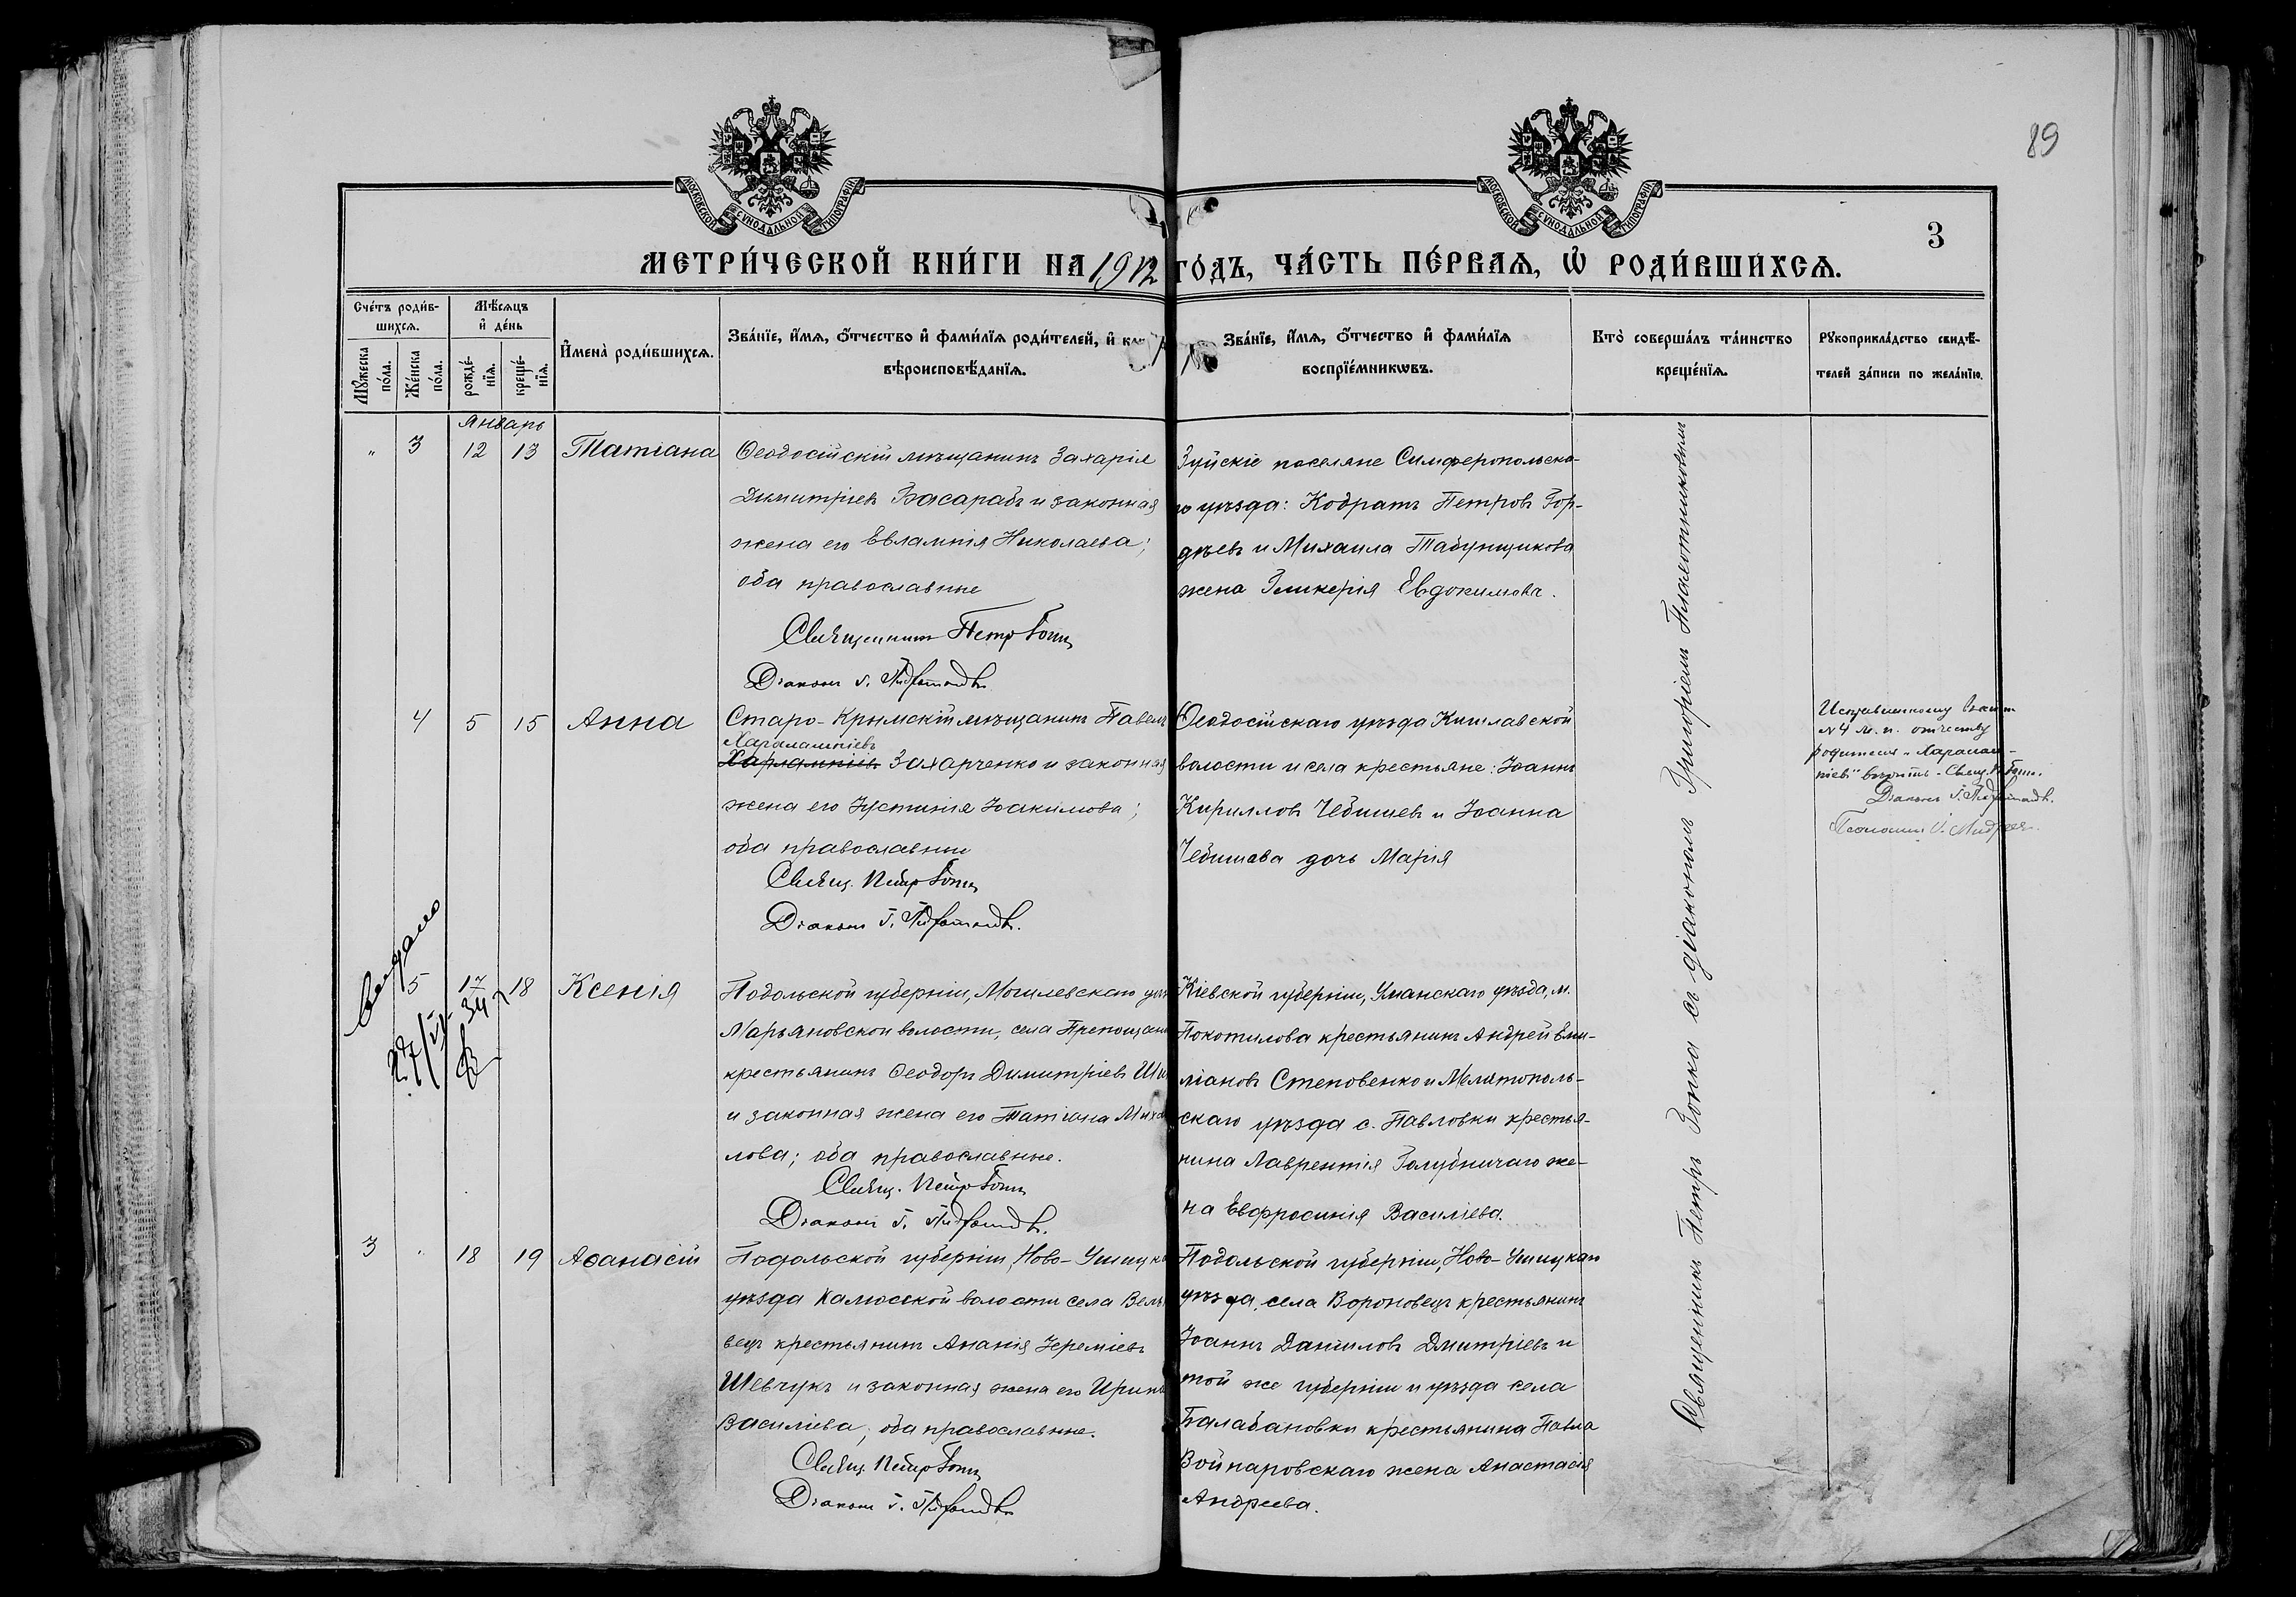 89
МОСКОВСКОЙ СУНОДАЛЬНОЙ ТИПОГРАФІИ
МОСКОВСКОЙ СУНОДАЛЬНОЙ ТИПОГРАФІИ
3
МЕТРИ́ЧЕСКОЙ КНИ́ГИ НА 1912 ГО́ДЪ, ЧА́СТЬ ПЕ́РВАЯ, Ѡ РОДИ́ВШИХСЯ.
Сче́тъ роди́в-
шихся.
Мѣ́сяцъ
и де́нь
Мꙋжеска
по́ла.
Же́нска
по́ла.
рожде́-
нїя.
креще́-
нїя.
Имена̀ роди́вшихся.
Зва́нїе, и́мя, ѻ́тчество и фами́лїя роди́телей, и
вѣроисповѣ́данїя.
Зва́нїе, и́мя, ѻ́тчество и фами́лїя
воспрїе́мникѡвъ.
Кто̀ соверша́лъ та́инство
креще́нїя.
Рꙋкоприкла́дство свидѣ́-
телей за́писи по жела́нїю.
Январь
" 3 12 13 Татіана
Ѳеодосійскій мѣщанинъ Захарія
Димитріевъ Басарабъ и законная
жена его Евлампія Николаева;
оба православные
Священникъ Петръ
Діаконъ Г.
Зуйскіе поселяне Симферопольска-
го уѣзда: Кодратъ Петровъ Гор-
дѣевъ и Михаила Табунщикова
жена Гликерія Евдокимова.
4 5 15 Анна
Старо-Крымскій мѣщанинъ Павелъ
Харалампіевъ
Харлампіевъ Захарченко и законная
жена его Іустинія Іоакимова;
оба православные
Свящ. Петръ
Діаконъ Г.
Ѳеодосійскаго уѣзда Кишлавской
волости и села крестьяне: Іоаннъ
Кирилловъ Чебишевъ и Іоанна
Чебишева дочь Марія
Исправленному
№ 4 м. п. отчеству
родителя „Харалам-
піевъ" вѣрить. Свящ. П.
Діаконъ Г.
Выдано
27/IV-34
5 17 18 Ксенія
Подольской губерніи, Могилевскаго
Марьяновской волости, села
крестьянинъ Ѳеодоръ Димитріевъ
и законная жена его Татіана
лова; оба православные.
Свящ. Петръ
Діаконъ Г.
Кіевской губерніи, Уманскаго уѣзда, м.
Покотилова крестьянинъ Андрей Еми-
ліановъ Степовенко и Мелитополь-
скаго уѣзда с. Павловки крестья-
нина Лаврентія Голубничаго же-
на Евфросинія Василіева.
3 " 18 19 Аѳанасій
Подольской губерніи, Ново-
уѣзда Калюсской волости села
вецъ крестьянинъ Ананія Іереміевъ
Шевчукъ и законная жена его Ирина
Василіева; оба православные.
Свящ. Петръ
Діаконъ Г.
Подольской губерніи, Ново-Ушицкаго
уѣзда, села Вороновецъ крестьянинъ
Іоаннъ Даниловъ Дмитріевъ и
той же губерніи и уѣзда села
Балабановки крестьянина Павла
Войнаровскаго жена Анастасія
Андреева.
Священникъ Петръ съ діакономъ Григоріемъ